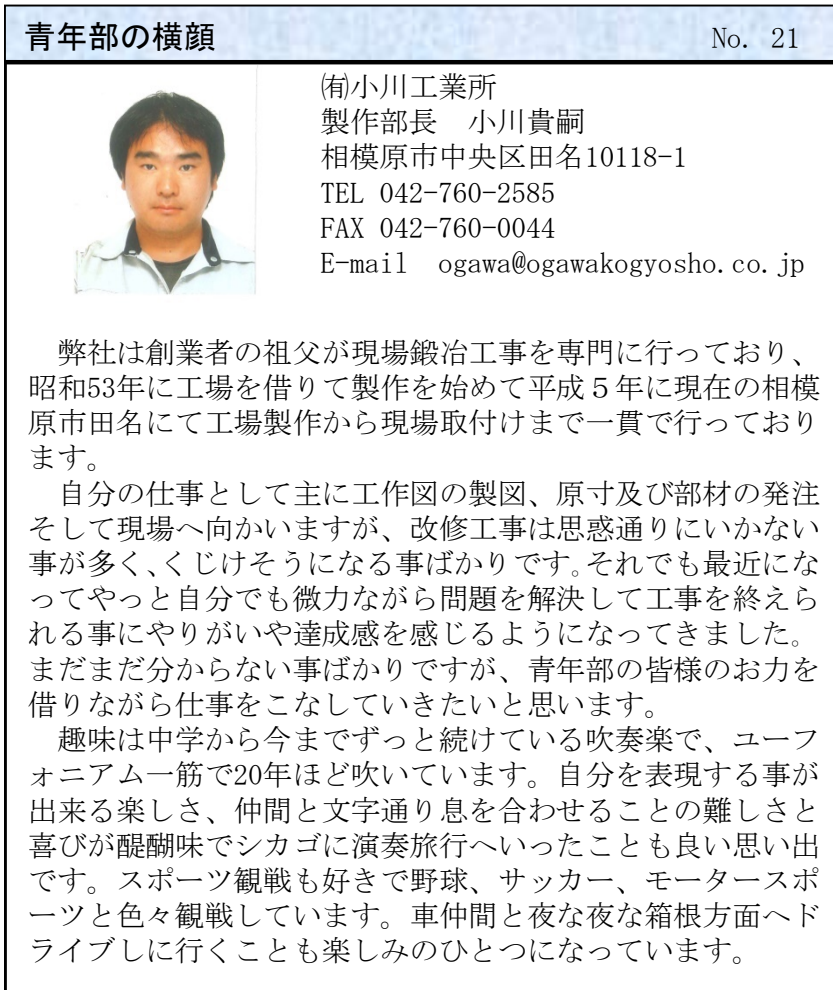 青年部の横顔 No. 21
㈲小川工業所
製作部長 小川貴嗣
相模原市中央区田名10118-1
TEL 042-760-2585
FAX 042-760-0044
E-mail ogawa@ogawakogyosho.co.jp
弊社は創業者の祖父が現場鍛冶工事を専門に行っており、
昭和53年に工場を借りて製作を始めて平成５年に現在の相模
原市田名にて工場製作から現場取付けまで一貫で行っており
ます。
自分の仕事として主に工作図の製図、原寸及び部材の発注
そして現場へ向かいますが、改修工事は思惑通りにいかない
事が多く、くじけそうになる事ばかりです。それでも最近にな
ってやっと自分でも微力ながら問題を解決して工事を終えら
れる事にやりがいや達成感を感じるようになってきました。
まだまだ分からない事ばかりですが、青年部の皆様のお力を
借りながら仕事をこなしていきたいと思います。
趣味は中学から今までずっと続けている吹奏楽で、ユーフ
ォニアム一筋で20年ほど吹いています。自分を表現する事が
出来る楽しさ、仲間と文字通り息を合わせることの難しさと
喜びが醍醐味でシカゴに演奏旅行へいったことも良い思い出
です。スポーツ観戦も好きで野球、サッカー、モータースポ
ーツと色々観戦しています。車仲間と夜な夜な箱根方面へド
ライブしに行くことも楽しみのひとつになっています。